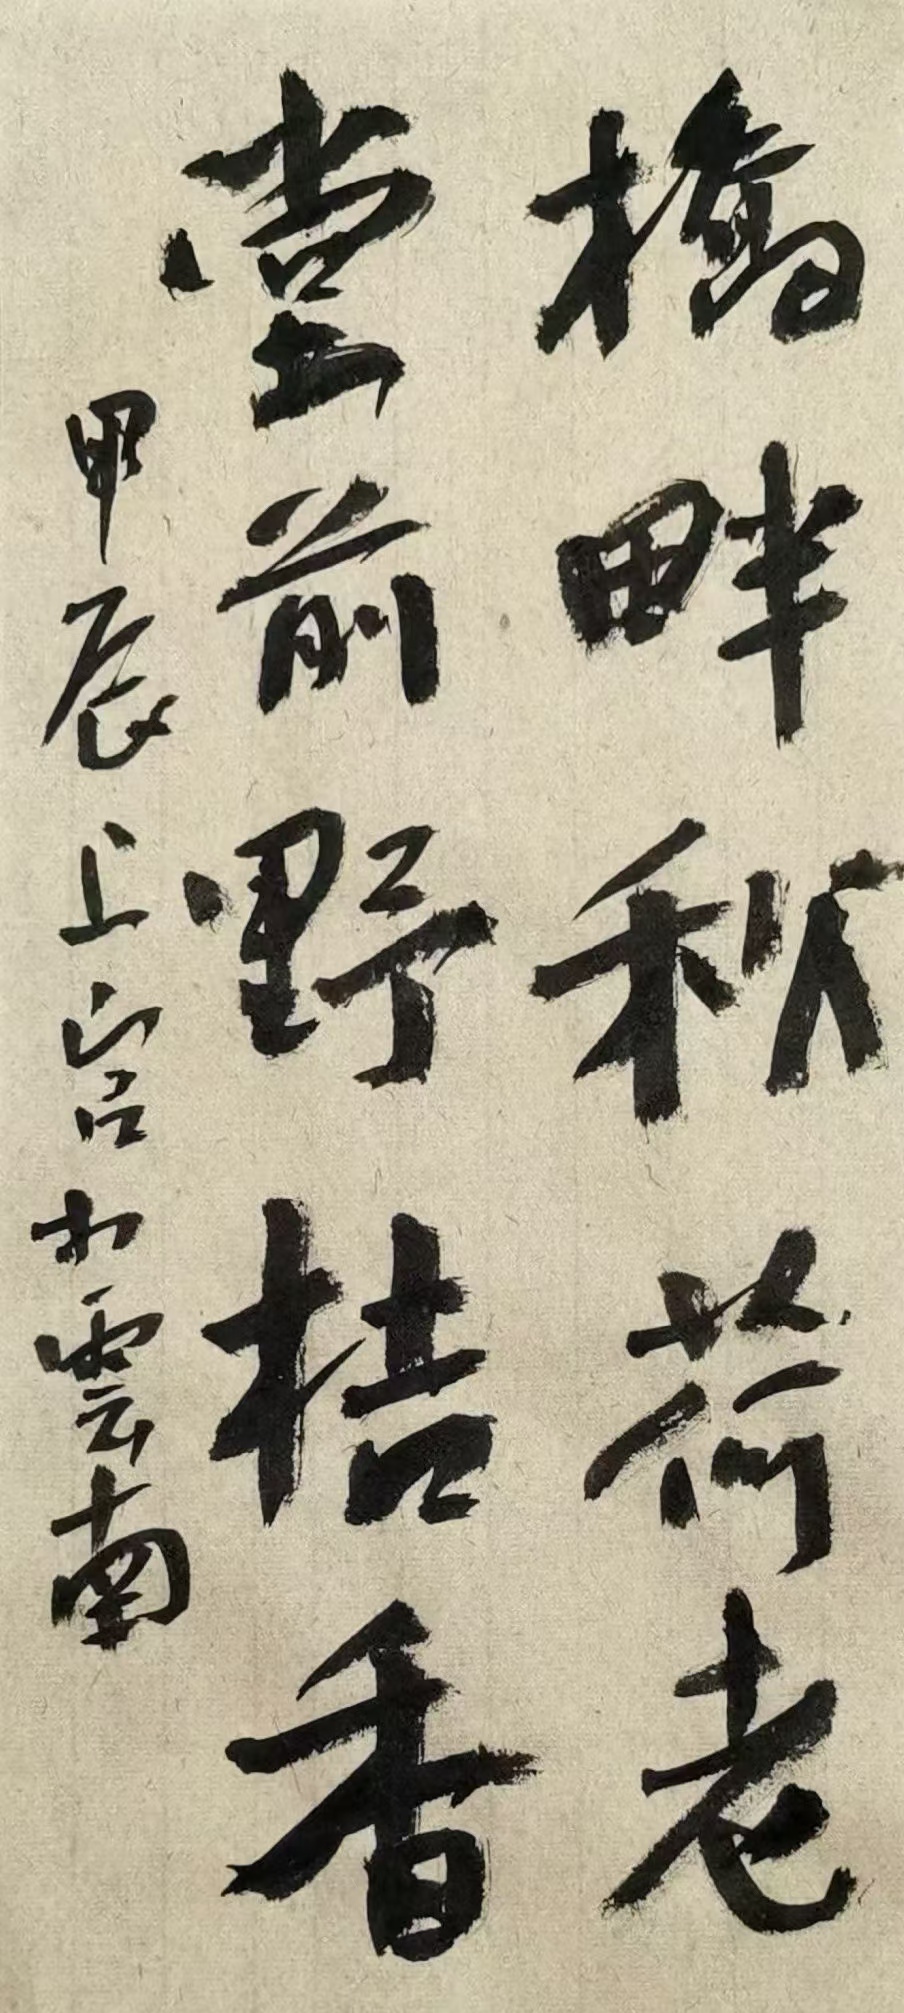 橋畔秋荷老
堂前野桔香
甲辰上官小雲南